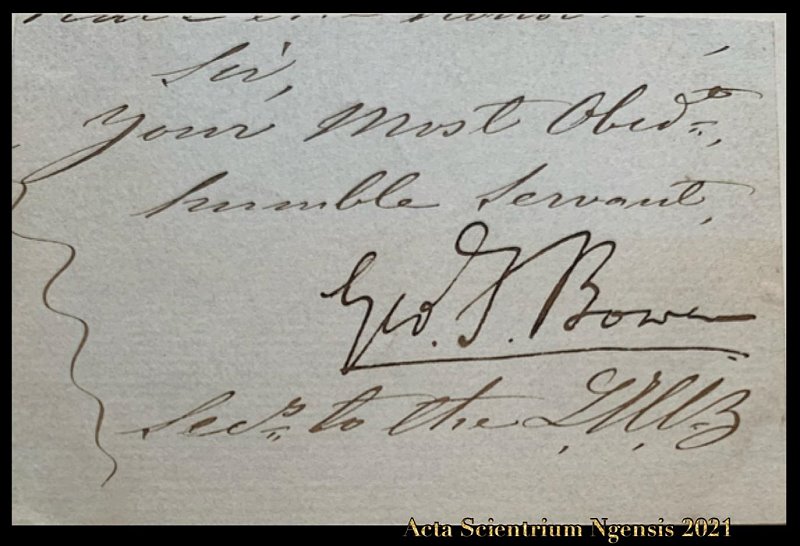 Sir,
Your Most Obedt,
humble servant,
Geo. F. Bowen
Secy to the
Acta Scientrium Ngensis 2021